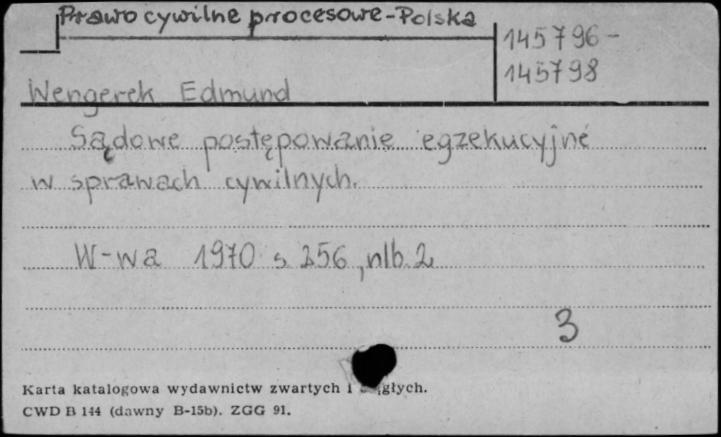 Prawo cywilne procesowe-Polska
145796-
145798
Wengerek Edmund
Sądowe postępowanie egzekucyjne
w sprawach cywilnych.
W-wa 1970 s. 256, nlb. 2
3
Karta katalogowa wydawnictw zwartych i
CWD B 144 (dawny B-15b). ZGG 91.